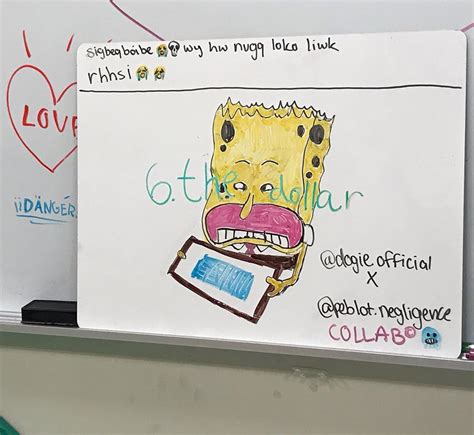 sigbeqboibe😭💀wy hw nugq loko liwk
rhhsi😭😭
LOVE
¡¡DÄNGER
6. the dollar
@dogie.official
X
@peblot.negligence
COLLAB©